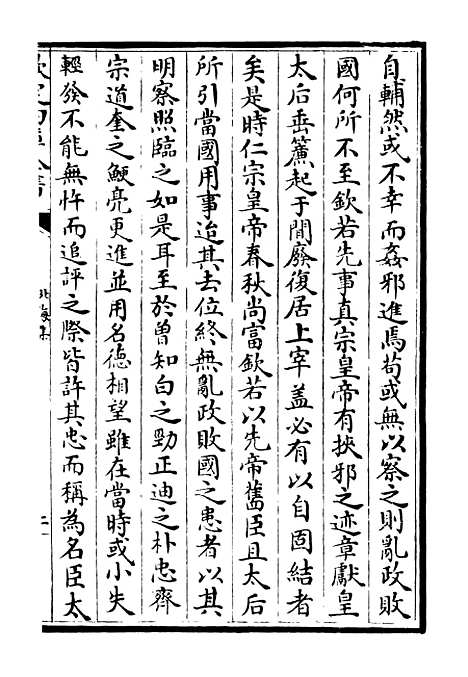 自輔然或不幸而姦邪進焉苟或無以察之則亂政敗
國何所不至欽若先事真宗皇帝有挾邪之迹章獻皇
太后垂簾起于閒廢復居上宰盖必有以自固結者
矣是時仁宗皇帝春秋尚富欽若以先帝舊臣且太后
所引當國用事迨其去位終無亂政敗國之患者以其
明察照臨之如是耳至於曾知白之勁正迪之朴忠齊
宗道奎之鯁亮更進並用名德相望雖在當時或小失
輕發不能無忤而追評之際皆許其忠而稱為名臣太
欽定四庫全書
北海集
二